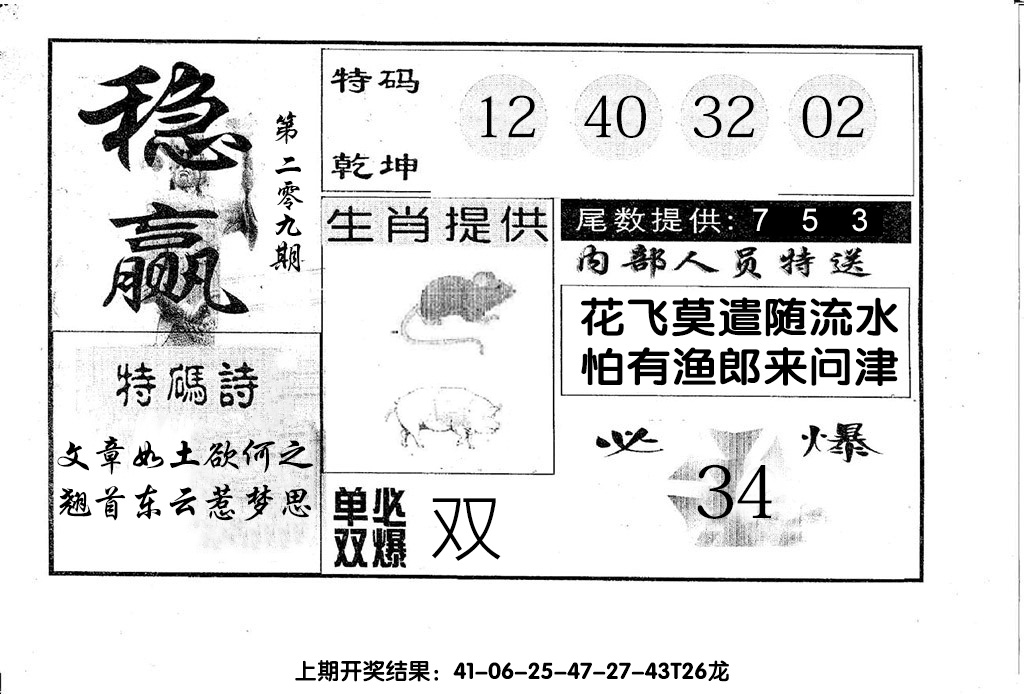 稳赢
第二零九期
特码
乾坤
12 40 32 02
特碼詩
文章如土欲何之
翘首东云惹梦思
生肖提供
单双必爆
双
尾数提供: 7 5 3
内部人员特送
花飞莫遣随流水
怕有渔郎来问津
必爆
34
上期开奖结果：41-06-25-47-27-43T26龙